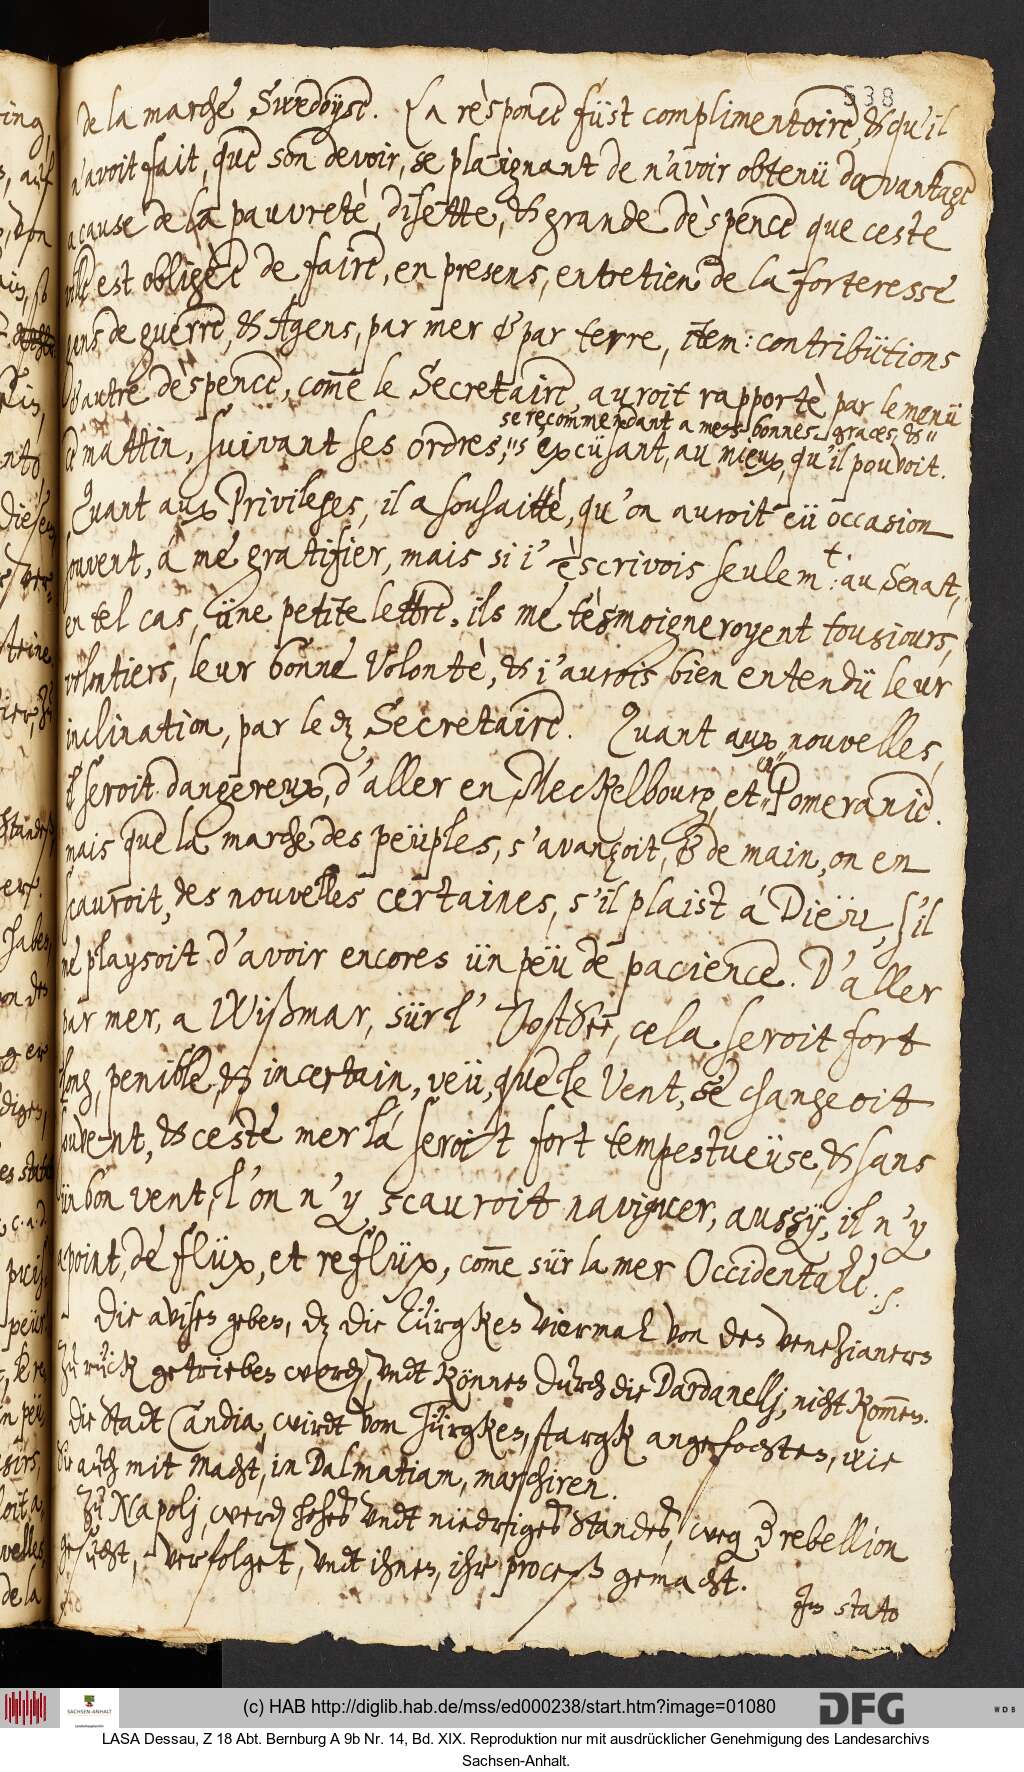 538
de la marche Sweddoyse. La rèsponce füst complimentoire, & qu'il
n'avoit fait, que son devoir, se plaignant de n'avoir obtenü davantage
a cause de la pauvretè, disette, & grande dèspence que ceste
ville est obligèe de faire, en presens, entretien de la forteresse
gens de guerre, & Agens, par mer & par terre, item: contribütions
& autre dèspence, com̄e le Secretaire auroit rapportè par le menü
ce mattin, suivant ses ordres,
se recommendant a mes bonnes graces, &
s'excüsant, au mieux, qu'il pouvoit.
Quant aux Privileges, il a souhaittè, qu'on auroit eü occasion
souvent, á me gratifier, mais si i' èscrivois seulem.t: au Senat,
en tel cas, üne petite lettre, ils me tèsmoigneroyent tousiours,
volontiers, leur bonne Volontè, & i'aurois bien entendü leur
inclination, par le dz Secretaire. Quant aux nouvelles,
il seroit dangereux, d'aller en Meckelbourg, et en Pomeranie.
mais que la marche des peüples, s'avançoit, & demain, on en
scauroit, des nouvelles certaines, s'il plaist á Dieü, s'il
me playsoit d'avoir encores ün peü de pacience. D'aller
par mer, a Wißmar, sür l' OostSee, cela seroit fort
long, penible, & incertain, veü, que le Vent, se changeoit
souvent, & ceste mer lá seroit fort tempestueüse, & sans
ün bon vent, l'on n'y scauroit naviguer, aussy, il n'y
a point, de flüx, et reflüx, com̄e sür la mer Occidentale. s.
Die avisen geben, dz die Türgken viermal von den venezianern
zu rück getrieben werden, undt können durch die Dardanellj, nicht kom̄en.
Die Stadt Candia, wirdt vom Türgken, starck angefochten, wie
Sie auch mit Macht, in Dalmatiam, marchiren.
Zu Napolj, werden hohes undt niedriges Standes, weg der rebellion
gesucht, verfolget, undt ihnen, ihr proceß gemacht.
In stato
(c) HAB http://diglib.hab.de/mss/ed000238/start.htm?image=01080
SACHSEN-ANHALT
DFG
WDB
LASA Dessau, Z 18 Abt. Bernburg A 9b Nr. 14, Bd. XIX. Reproduktion nur mit ausdrücklicher Genehmigung des Landesarchivs
Sachsen-Anhalt.